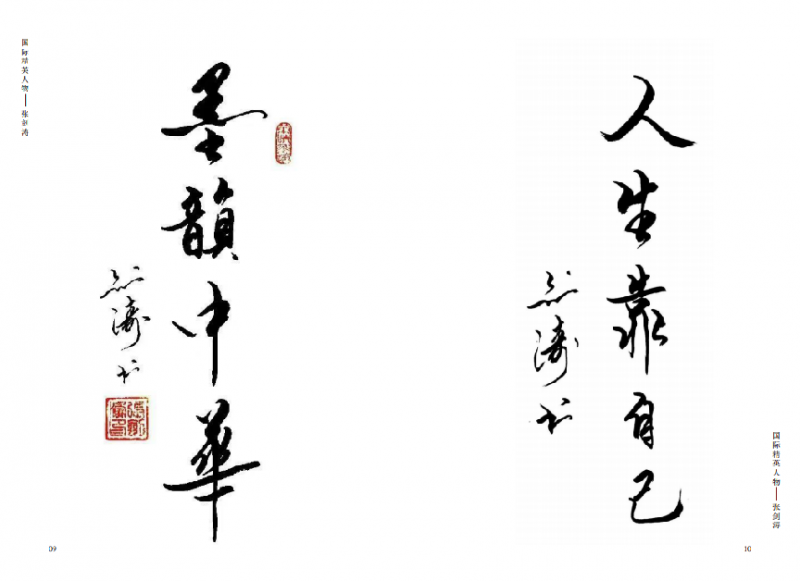 国际精英人物——张剑涛
墨韻中華
剑涛书
09
人生靠自己
剑涛书
国际精英人物——张剑涛
10